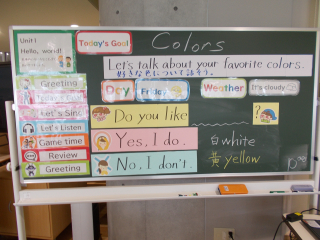 Unit 1
Hello, world!
Today's Goal
Colors
Let's talk about your favorite colors.
好きな色について話そう。
Greeting
Today's Goal
Let's Sing
Let's Listen
Game time
Review
Greeting
Day
Friday
Weather
It's cloudy
Do you like
?
Yes, I do.
No, I don't.
白 white
黄 yellow